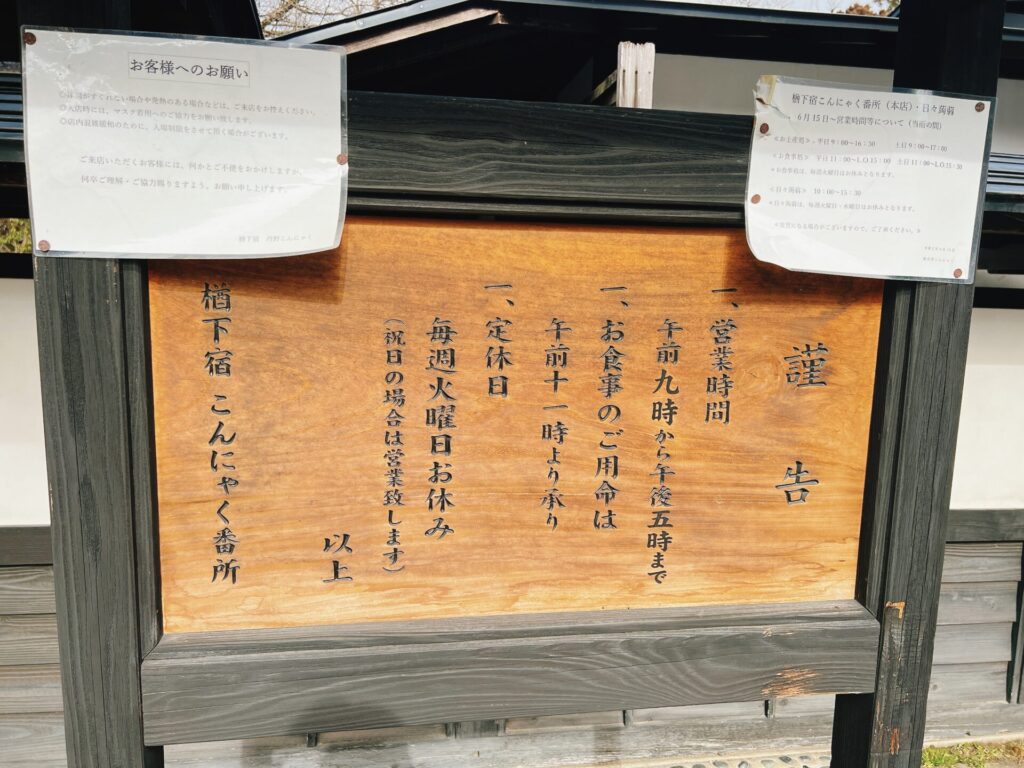 お客様へのお願い
◎体調がすぐれない場合や発熱のある場合などは、ご来店をお控えください。
◎入店時には、マスク着用へのご協力をお願い致します。
◎店内混雑緩和のために、入場制限をさせて頂く場合がございます。
ご来店いただくお客様には、何かとご不便をおかけしますが、
何卒ご理解・ご協力賜りますよう、お願い申し上げます。
楢下宿 丹野こんにゃく
楢下宿こんにゃく番所(本店)・日々蒟蒻
6月15日~営業時間等について(当面の間)
≪お土産処≫ 平日9:00~16:30 土日9:00~17:00
≪お食事処≫ 平日11:00~L.O.15:00 土日11:00~L.O.15:30
*お食事処は、毎週火曜日はお休みとなります。
≪日々蒟蒻≫ 10:00~15:30
*日々蒟蒻は、毎週火曜日・水曜日はお休みとなります。
謹告
一、営業時間
午前九時から午後五時まで
一、お食事のご用命は
午前十一時より承り
一、定休日
毎週火曜日お休み
(祝日の場合は営業致します)
以上
楢下宿 こんにゃく番所